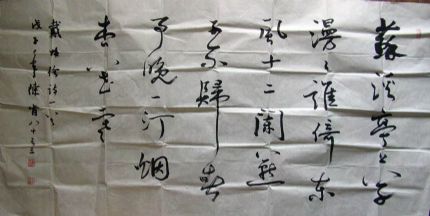 蘇溪亭上草
漫漫誰倚東
風十二闌燕
子不歸春
事晚一汀烟
雨杏花寒
戴叔倫詩一首
戊子年
八十